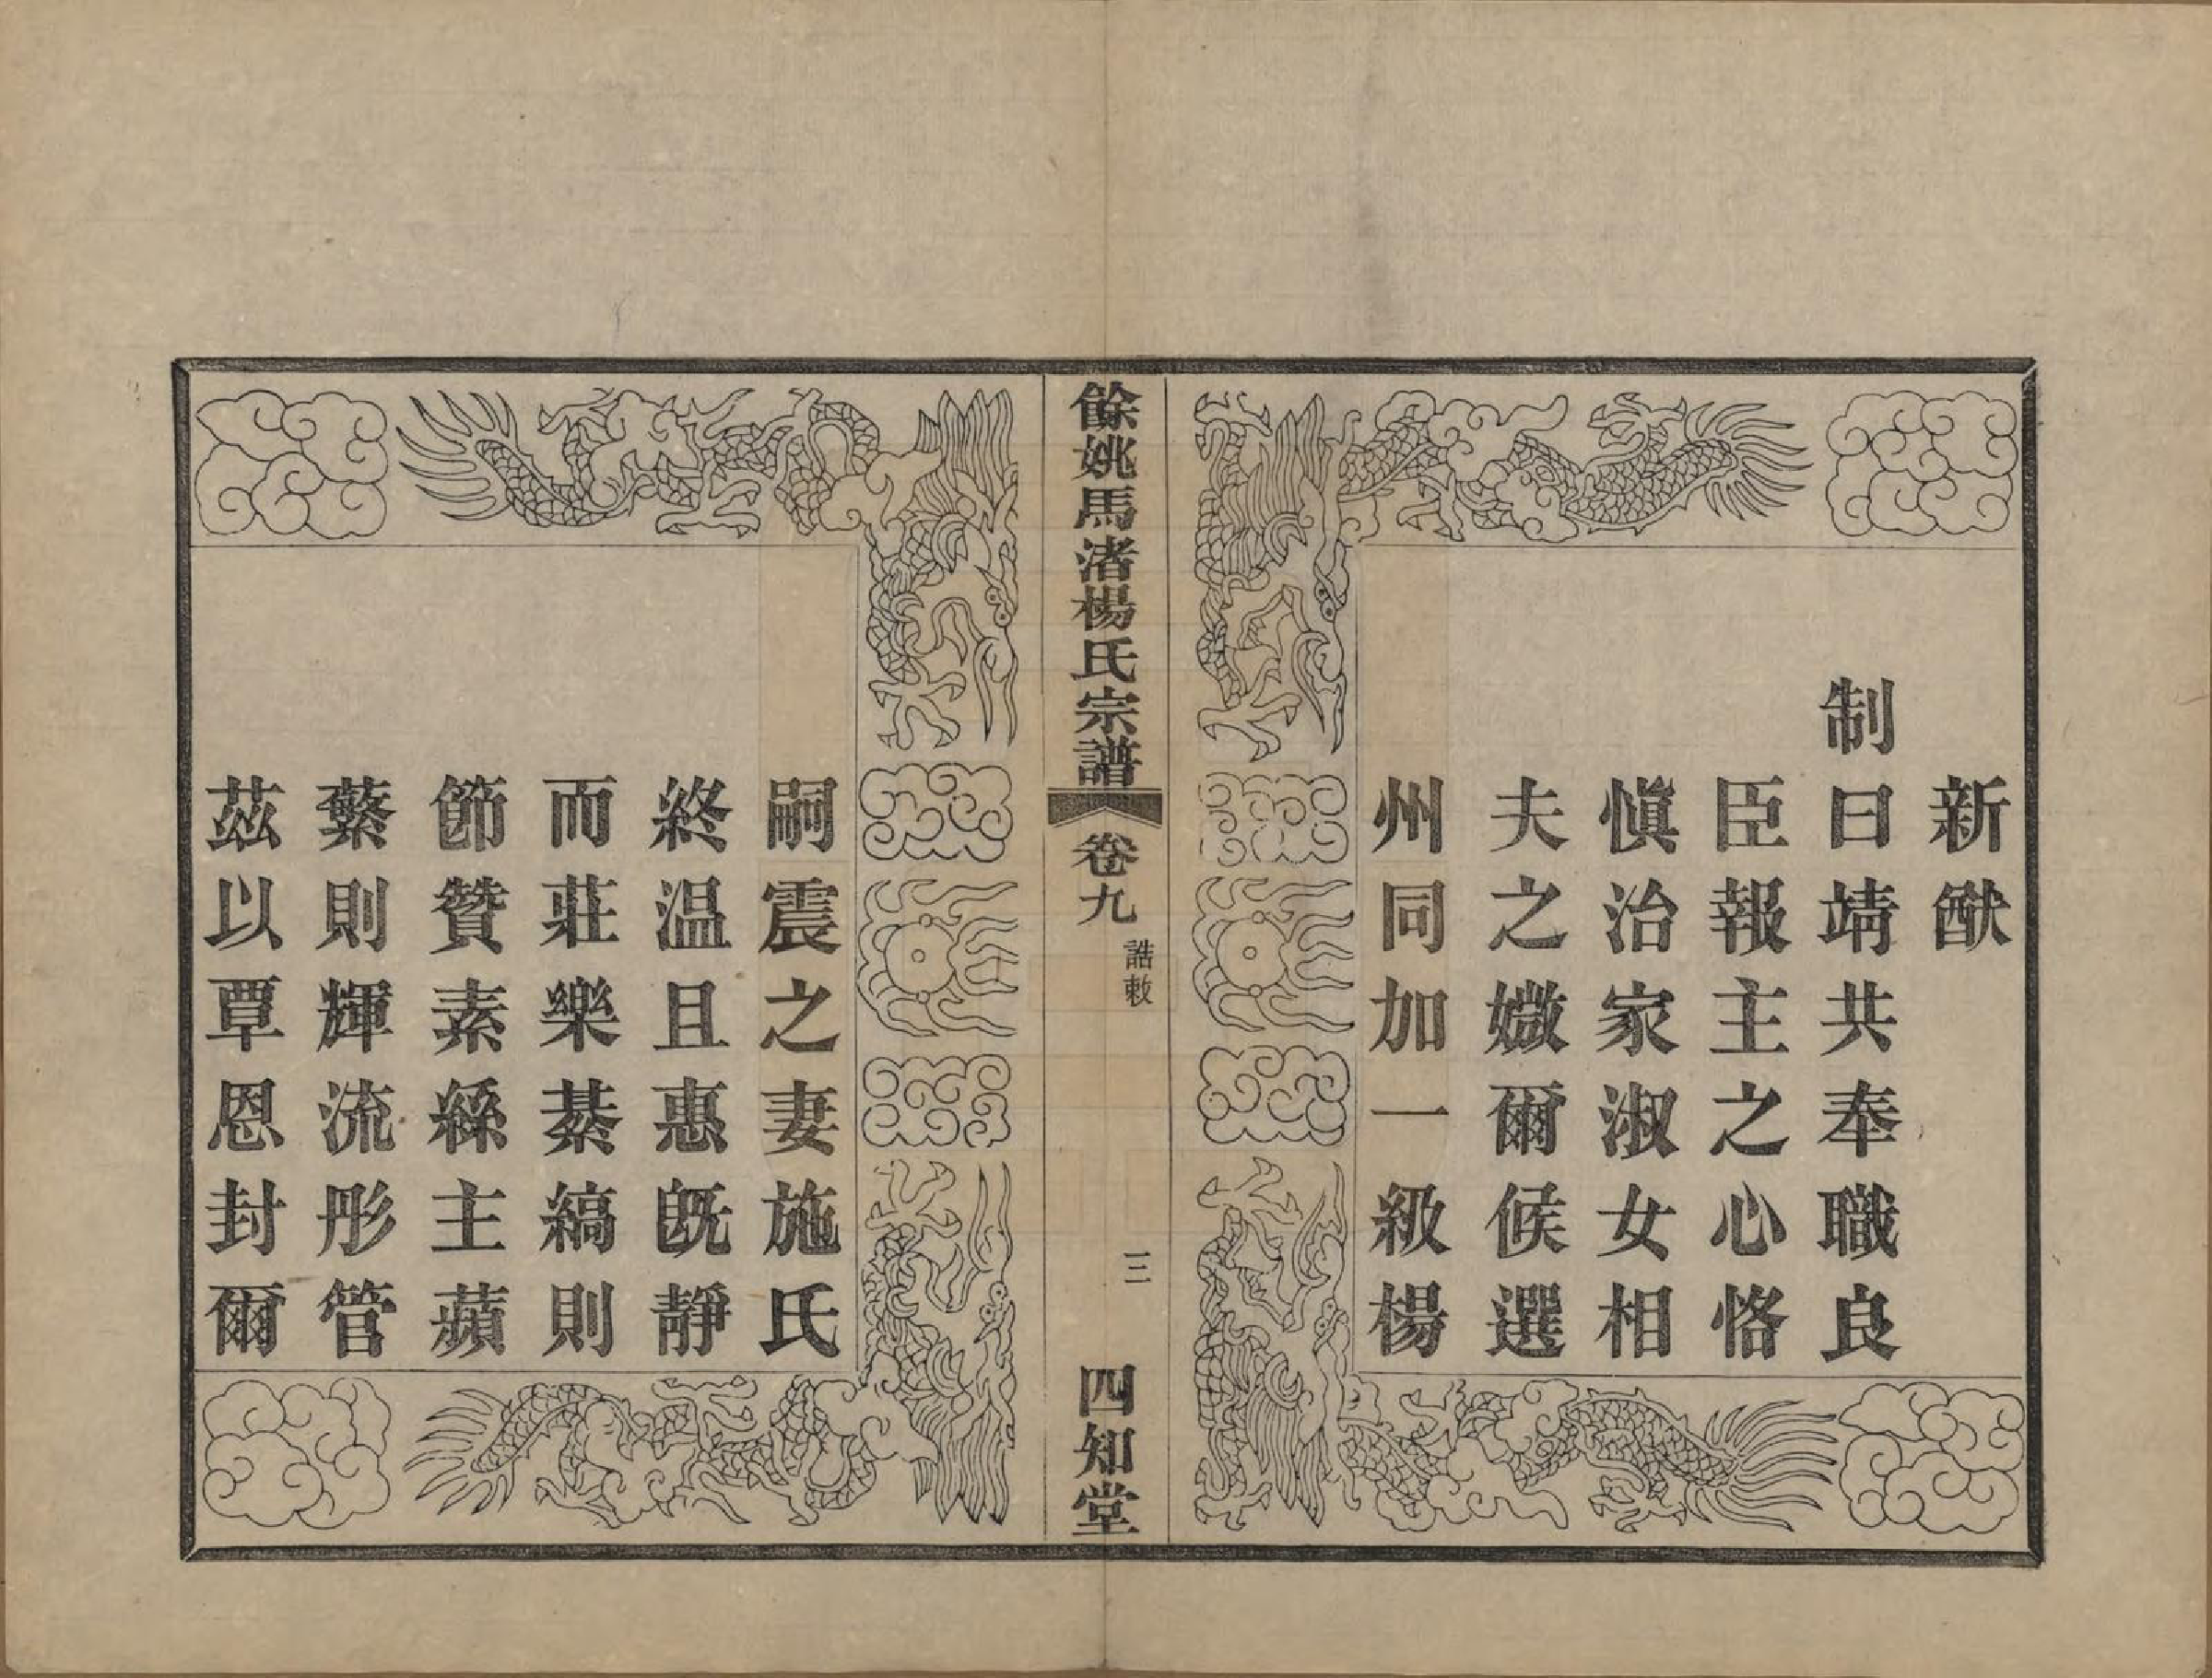 新猷
制曰靖共奉職良
臣報主之心恪
愼治家淑女相
夫之媺爾候選
州同加一級楊
餘姚馬渚楊氏宗譜
卷九
誥敕
三
四知堂
嗣震之妻施氏
終温且惠旣靜
而莊樂綦縞則
節贊素絲主蘋
蘩則輝流彤管
茲以覃恩封爾